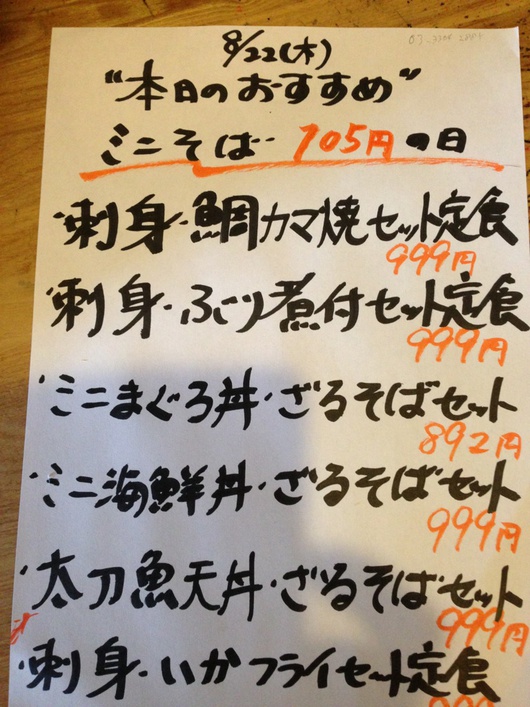 8/22(木)
"本日のおすすめ"
ミニそば 105円の日
・刺身・鯛カマ焼セット定食
999円
・刺身・ぶり煮付セット定食
999円
・ミニまぐろ丼・ざるそばセット
892円
・ミニ海鮮丼・ざるそばセット
999円
・太刀魚天丼・ざるそばセット
999円
・刺身・いかフライセット定食